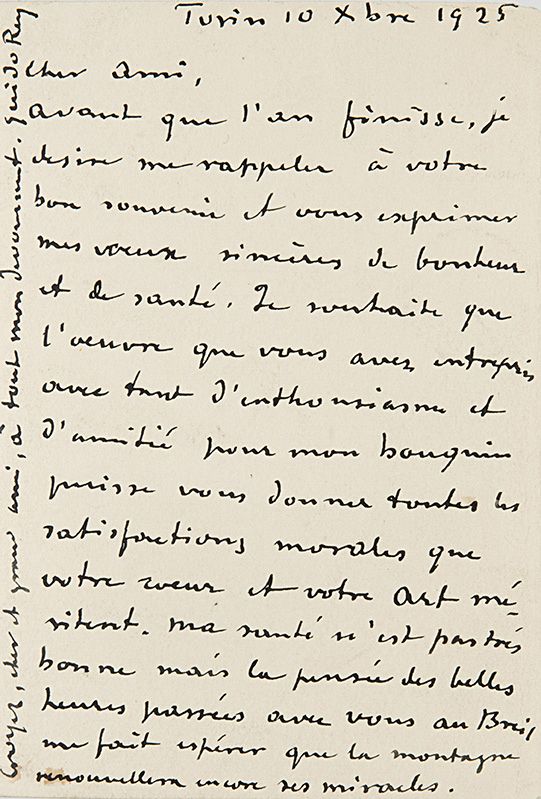 Turin 10 Xbre 1925
Cher ami,
avant que l'an finisse, je
desire me rappeler à votre
bon souvenir et vous exprimer
mes vœux sincères de bonheur
et de santé. Je souhaite que
l'oeuvre que vous avez entrepris
avec tant d'enthousiasme et
d'amitié pour mon bouquin
puisse vous donner toutes les
satisfactions morales que
votre cœur et votre art mé-
ritent. Ma santé n'est pas très
bonne mais la pensée des belles
heures passées avec vous au Breil
me fait espérer que la montagne
renouvellera encore ses miracles.
Croyez, cher et grand ami, à tout mon dévouement. Guido Rey